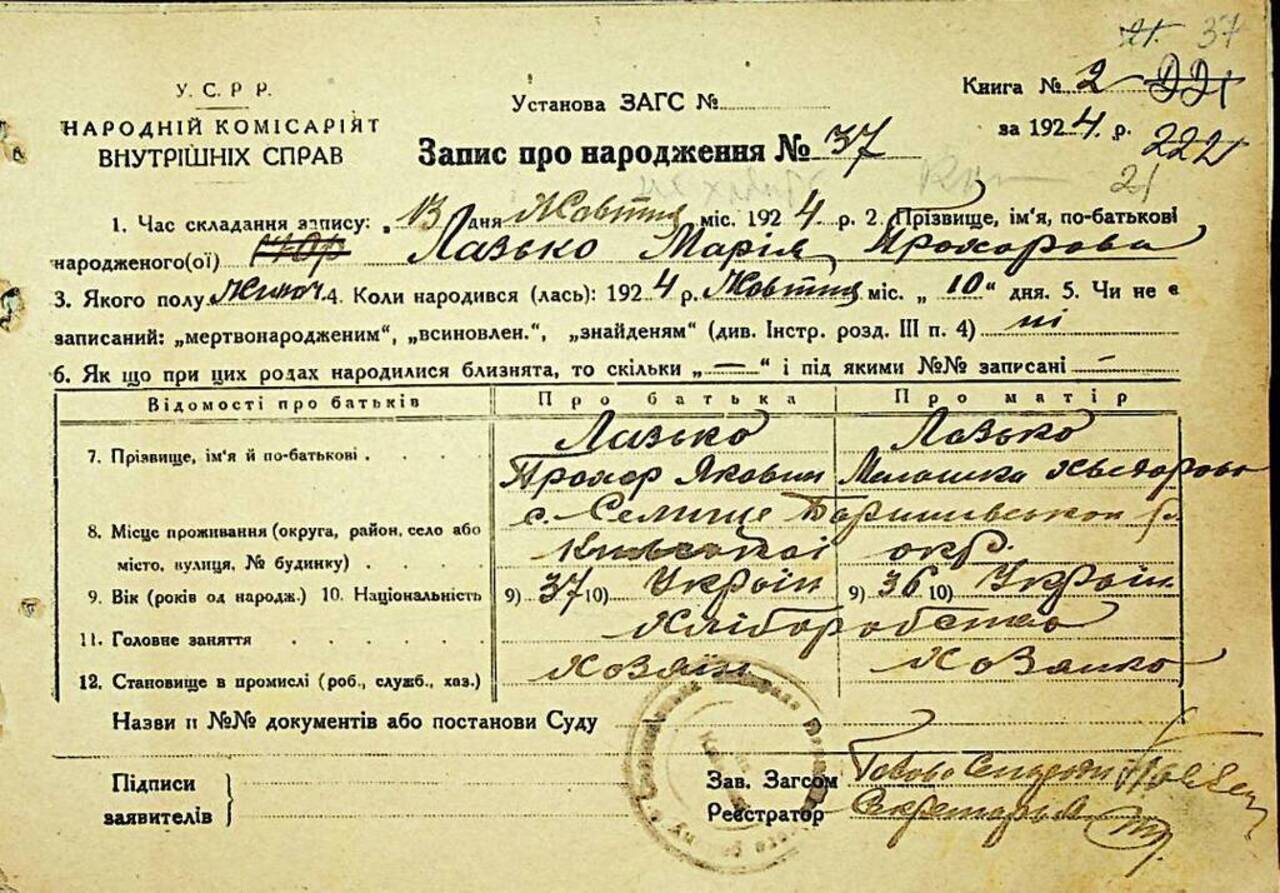 21. 37
У.С.Р.Р.
НАРОДНІЙ КОМІСАРІЯТ
ВНУТРІШНІХ СПРАВ
Установа ЗАГС №
Книга № 2 221
за 1924. р. 222
Запис про народження № 37
21
1. Час складання запису: „13 дня Жовтня міс. 1924 р. 2. Прізвище, ім'я, по-батькові
народженого(ої) Лазько Марія Прохорова
3. Якого полу Жіноч. 4. Коли народився (лась): 1924 р. Жовтня міс. „10“ дня. 5. Чи не є
записаний: „мертвонародженим“, „всиновлен.“, „знайденям“ (див. Інстр. розд. III п. 4) ні
6. Як що при цих родах народилися близнята, то скільки „—“ і під якими №№ записані —
Відомості про батьків Про батька Про матір
7. Прізвище, ім'я й по-батькові Лазько Лазько
Прохор Якович Мелашка Хведорова
8. Місце проживання (округа, район, село або с. Селище Баришівськой р.
місто, вулиця, № будинку) Київської окр.
9. Вік (років од народж.) 10. Національність 9) 37 10) Україн 9) 36 10) Україн
11. Головне заняття Хліборобство
12. Становище в промислі (роб., служб., хаз.) Хозяїн Хозяйка
Назви п №№ документів або постанови Суду
Підписи
заявителів
Зав. Загсом Голова
Реєстратор Секретарь